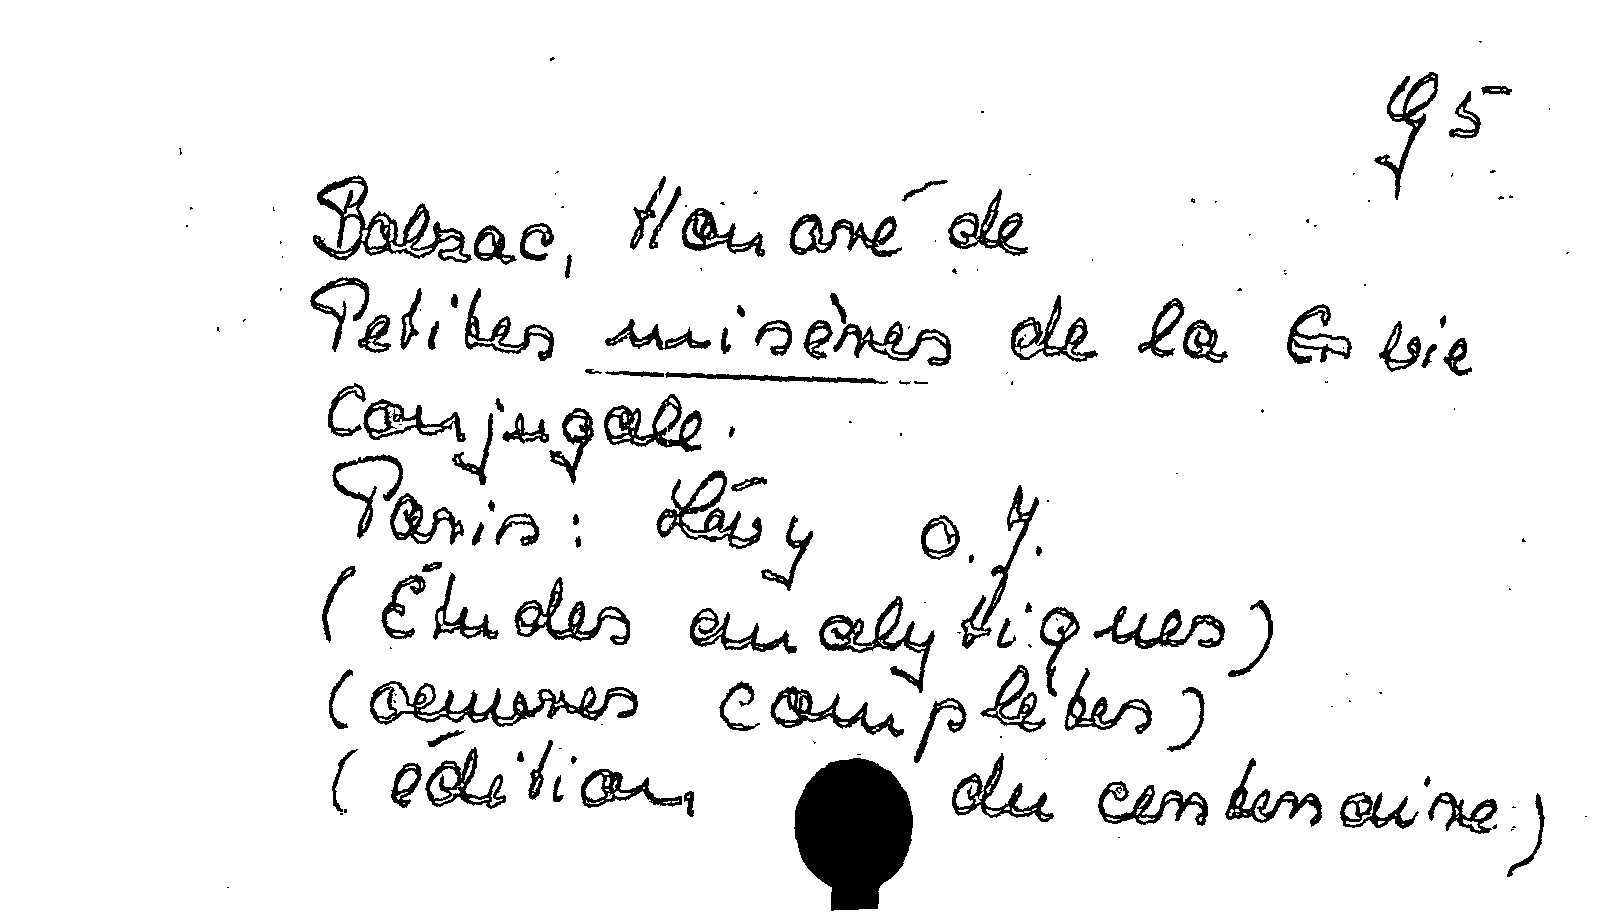 G 5
Balzac, Honoré de
Petites misères de la vie
conjugale.
Paris: Lévy o. J.
(Études analytiques)
(oeuvres complètes)
(édition du centenaire)